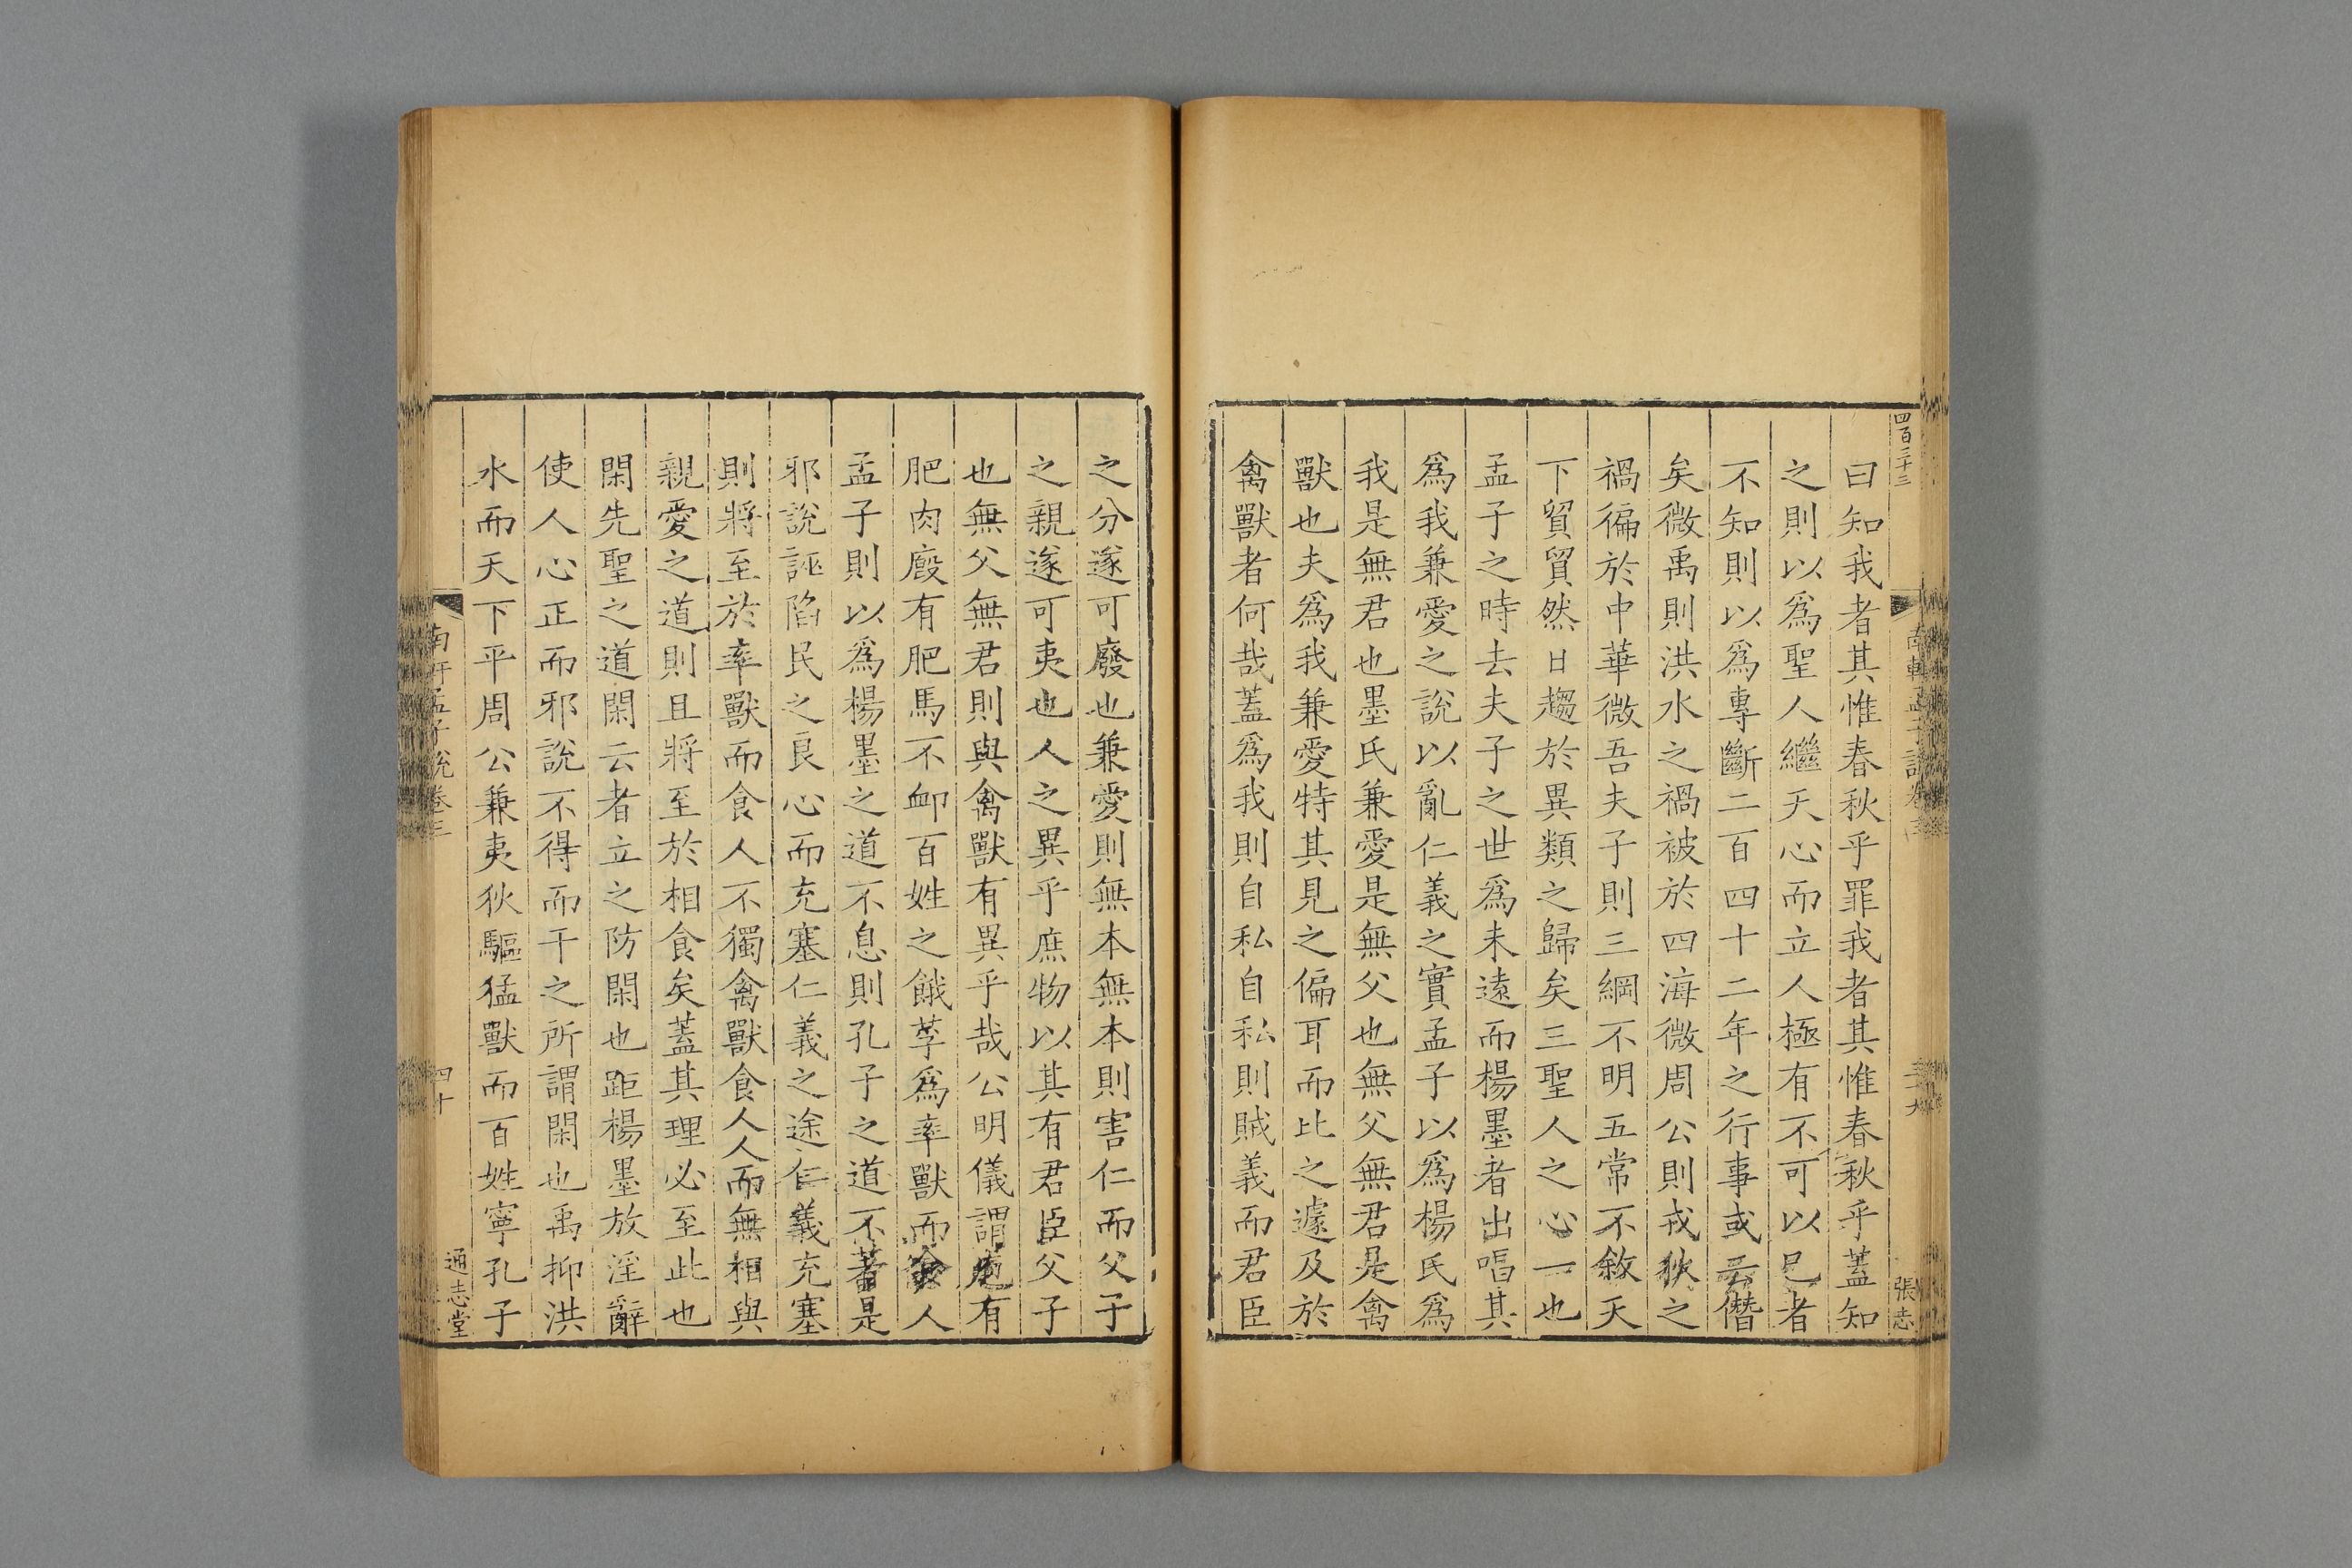 四百二十三
曰知我者其惟春秋乎罪我者其惟春秋乎蓋知
之則以爲聖人繼天心而立人極有不可以已者
不知則以爲專斷二百四十二年之行事或云僭
矣微禹則洪水之禍被於四海微周公則戎狄之
禍徧於中華微吾夫子則三綱不明五常不敘天
下貿貿然日趨於異類之歸矣三聖人之心一也
孟子之時去夫子之世爲未遠而楊墨者出唱其
爲我兼愛之說以亂仁義之實孟子以爲楊氏爲
我是無君也墨氏兼愛是無父也無父無君是禽
獸也夫爲我兼愛特其見之偏耳而比之遽及於
禽獸者何哉蓋爲我則自私自私則賊義而君臣
南軒孟子說卷三
三十九
張志
之分遂可廢也兼愛則無本無本則害仁而父子
之親遂可夷也人之異乎庶物以其有君臣父子
也無父無君則與禽獸有異乎哉公明儀謂庖有
肥肉廄有肥馬不卹百姓之餓莩爲率獸而食人
孟子則以爲楊墨之道不息則孔子之道不著是
邪說誣陷民之良心而充塞仁義之途仁義充塞
則將至於率獸而食人不獨禽獸食人人而無相與
親愛之道則且將至於相食矣蓋其理必至此也
閑先聖之道閑云者立之防閑也距楊墨放淫辭
使人心正而邪說不得而干之所謂閑也禹抑洪
水而天下平周公兼夷狄驅猛獸而百姓寧孔子
南軒孟子說卷三
四十
通志堂